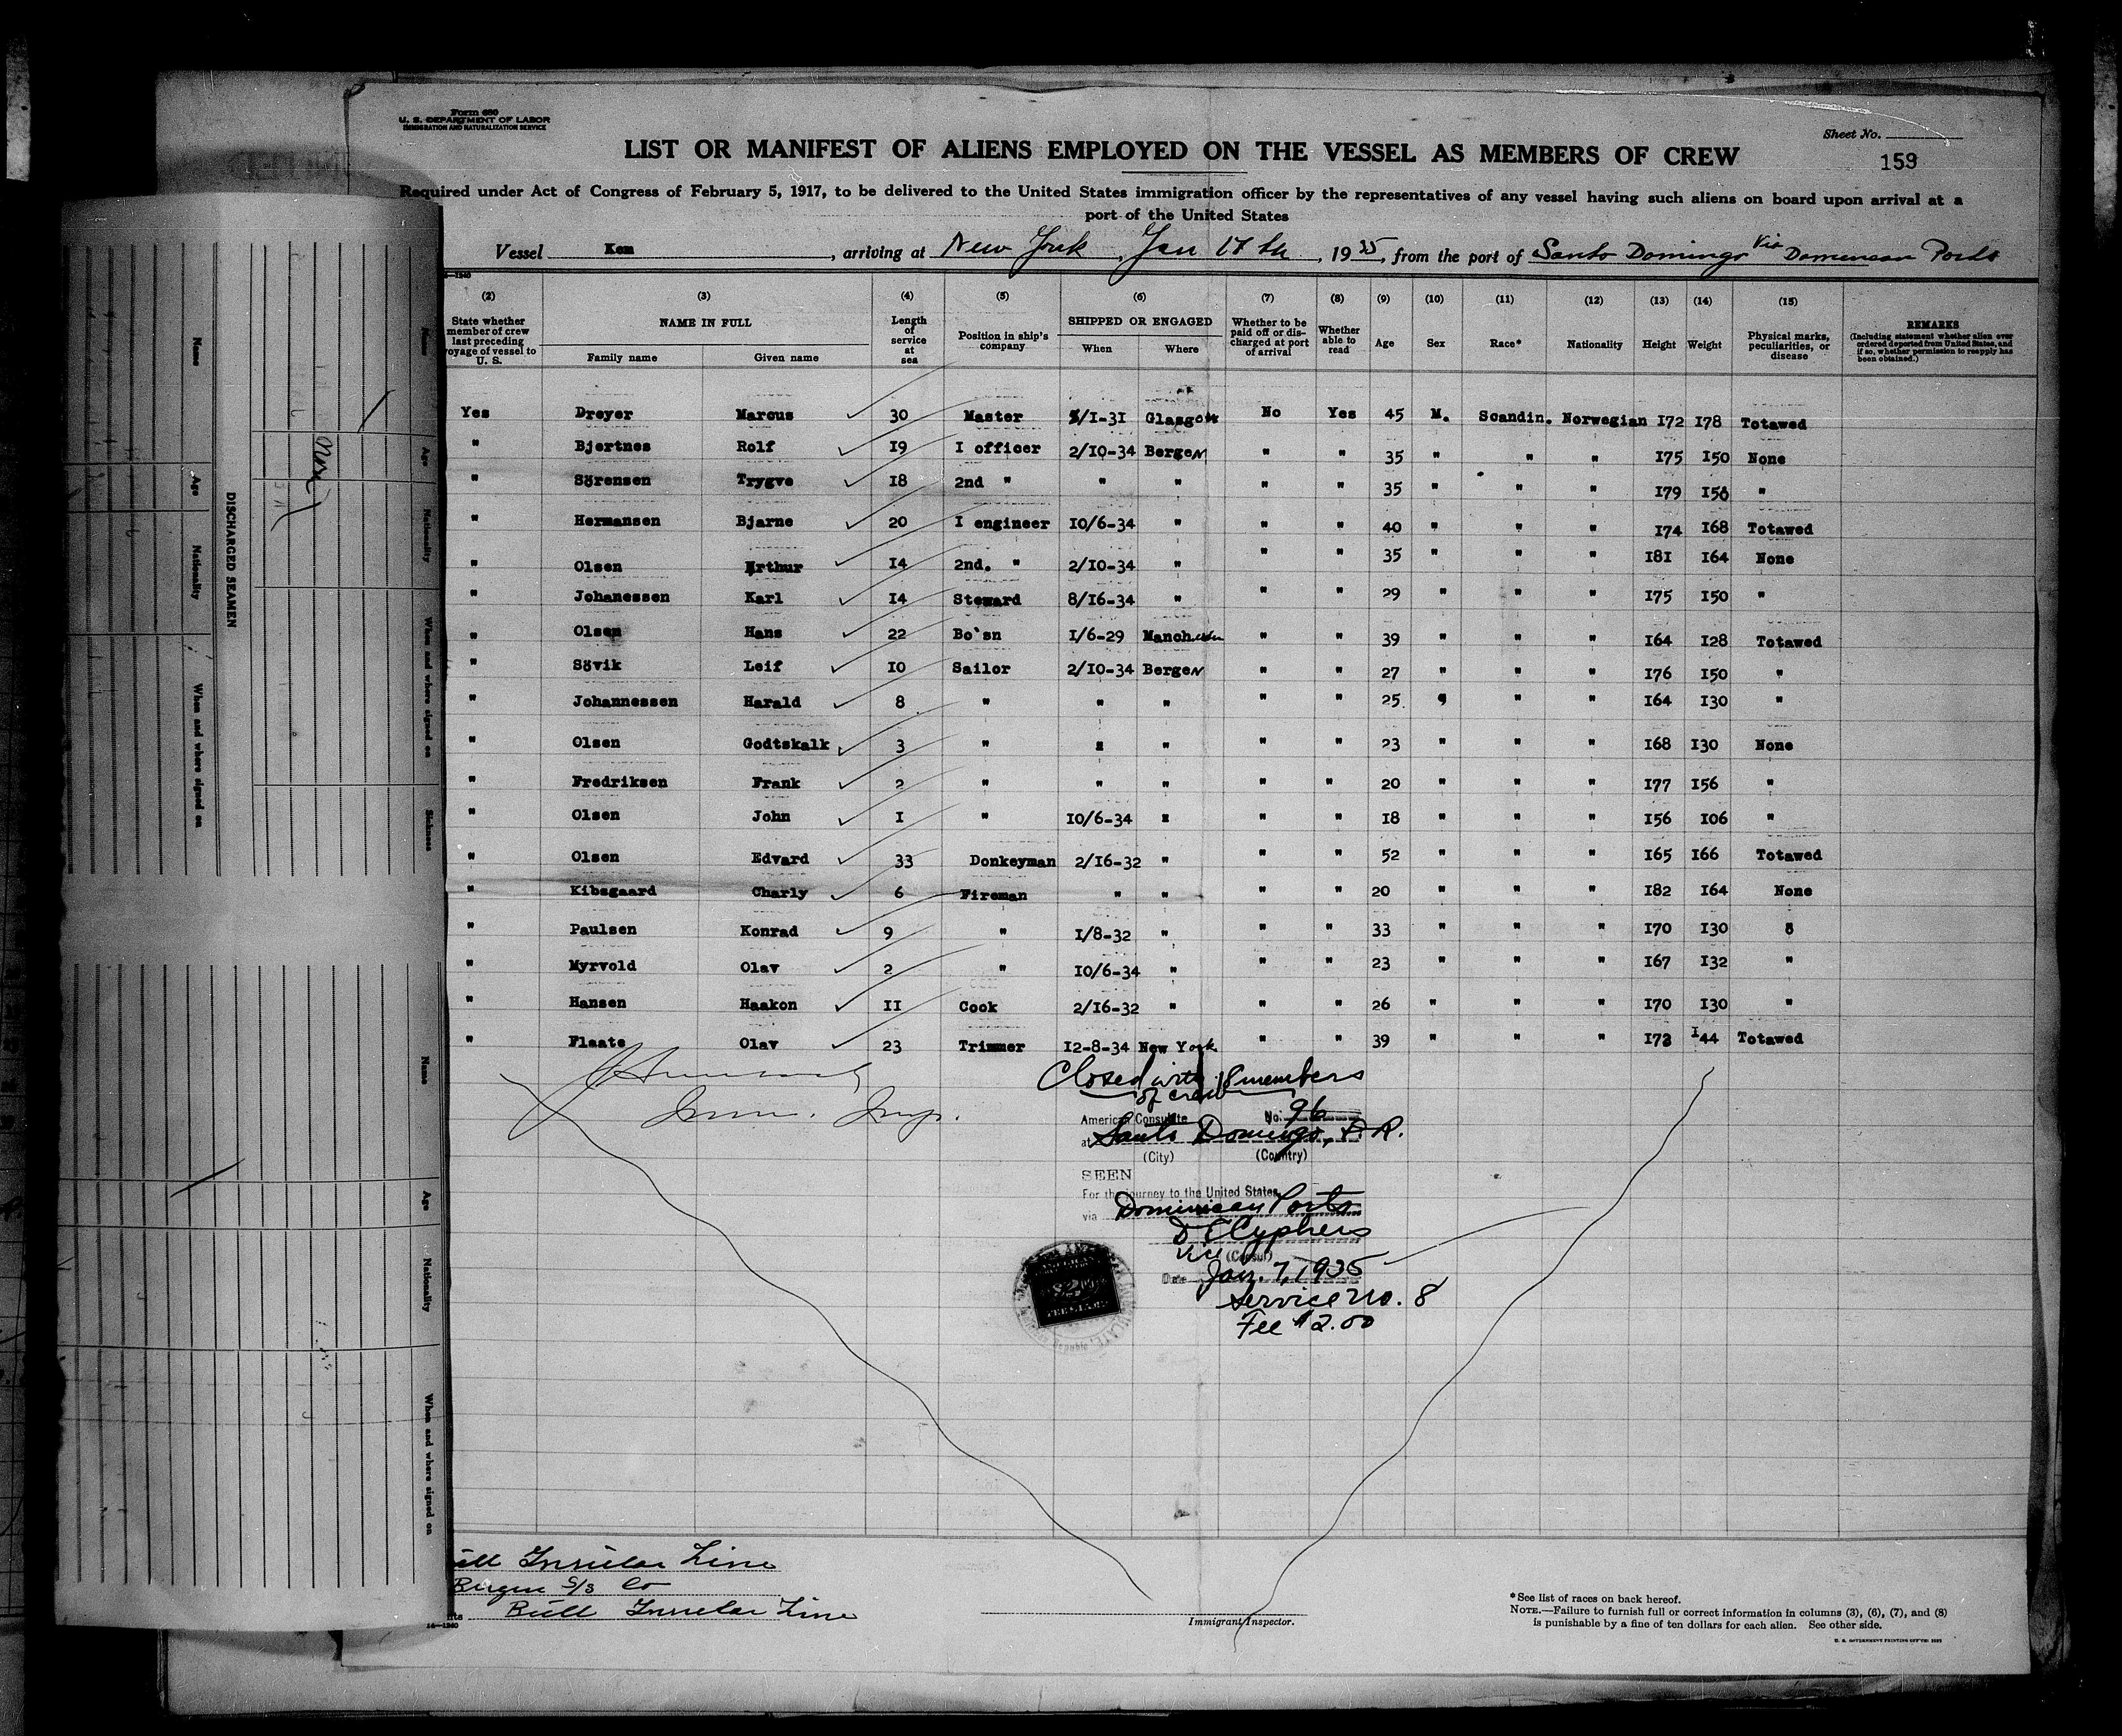 Form 680
U. S. DEPARTMENT OF LABOR
IMMIGRATION AND NATURALIZATION SERVICE
Sheet No.
159
LIST OR MANIFEST OF ALIENS EMPLOYED ON THE VESSEL AS MEMBERS OF CREW
Required under Act of Congress of February 5, 1917, to be delivered to the United States immigration officer by the representatives of any vessel having such aliens on board upon arrival at a
port of the United States
Vessel Kem, arriving at New York, Jan 17th, 1935, from the port of Santo Domingo Via Dominican Ports
(2) (3) (4) (5) (6) (7) (8) (9) (10) (11) (12) (13) (14) (15)
State whether member of crew last preceding voyage of vessel to U. S.
NAME IN FULL
Family name Given name
Length of service at sea
Position in ship's company
SHIPPED OR ENGAGED
When Where
Whether to be paid off or discharged at port of arrival
Whether able to read
Age Sex Race* Nationality Height Weight
Physical marks, peculiarities, or disease
REMARKS
(Including statement whether alien ever ordered deported from United States, and if so, whether permission to reapply has been obtained.)
Yes Dreyer Marcus 30 Master 5/1-31 Glasgow No Yes 45 M. Scandin. Norwegian 172 178 Totawed
" Bjertnes Rolf 19 I officer 2/10-34 Bergen " " 35 " " " 175 150 None
" Sörensen Trygve 18 2nd " " " " " 35 " " " 179 158 "
" Hermansen Bjarne 20 I engineer 10/6-34 " " " 40 " " " 174 168 Totawed
" Olsen Arthur 14 2nd. " 2/10-34 " " " 35 " " " 181 164 None
" Johanessen Karl 14 Steward 8/16-34 " " " 29 " " " 175 150 "
" Olsen Hans 22 Bo`sn 1/6-29 Manchester " " 39 " " " 164 128 Totawed
" Sövik Leif 10 Sailor 2/10-34 Bergen " " 27 " " " 176 150 "
" Johannessen Harald 8 " " " " " 25 " " " 164 130 "
" Olsen Godtskalk 3 " " " " " 23 " " " 168 130 None
" Fredriksen Frank 2 " " " " " 20 " " " 177 156 "
" Olsen John 1 " 10/6-34 " " " 18 " " " 156 106 "
" Olsen Edvard 33 Donkeyman 2/16-32 " " " 52 " " " 165 166 Totawed
" Kibsgaard Charly 6 Fireman " " " " 20 " " " 182 164 None
" Paulsen Konrad 9 " 1/8-32 " " " 33 " " " 170 130 "
" Myrvold Olav 2 " 10/6-34 " " " 23 " " " 167 132 "
" Hansen Haakon 11 Cook 2/16-32 " " " 26 " " " 170 130 "
" Flaate Olav 23 Trimmer 12-8-34 New York " " 39 " " " 172 144 Totawed
Imm. Insp.
Closed with 18 members
of crew
American Consulate No. 96
at Santo Domingo, D.R.
(City) (Country)
SEEN
For the journey to the United States
via Dominican Ports
Vice (Consul)
Date Jan. 7, 1935
Service No. 8
Fee $2.00
Bull Insular Line
Bergen S/S Co
Bull Insular Line
14—1240
Immigrant Inspector.
*See list of races on back hereof.
NOTE.—Failure to furnish full or correct information in columns (3), (6), (7), and (8)
is punishable by a fine of ten dollars for each alien. See other side.
U. S. GOVERNMENT PRINTING OFFICE
DISCHARGED SEAMEN
Name Age Nationality When and where signed on
Name Age Nationality When and where signed on Sickness
Name Age Nationality When and where signed on